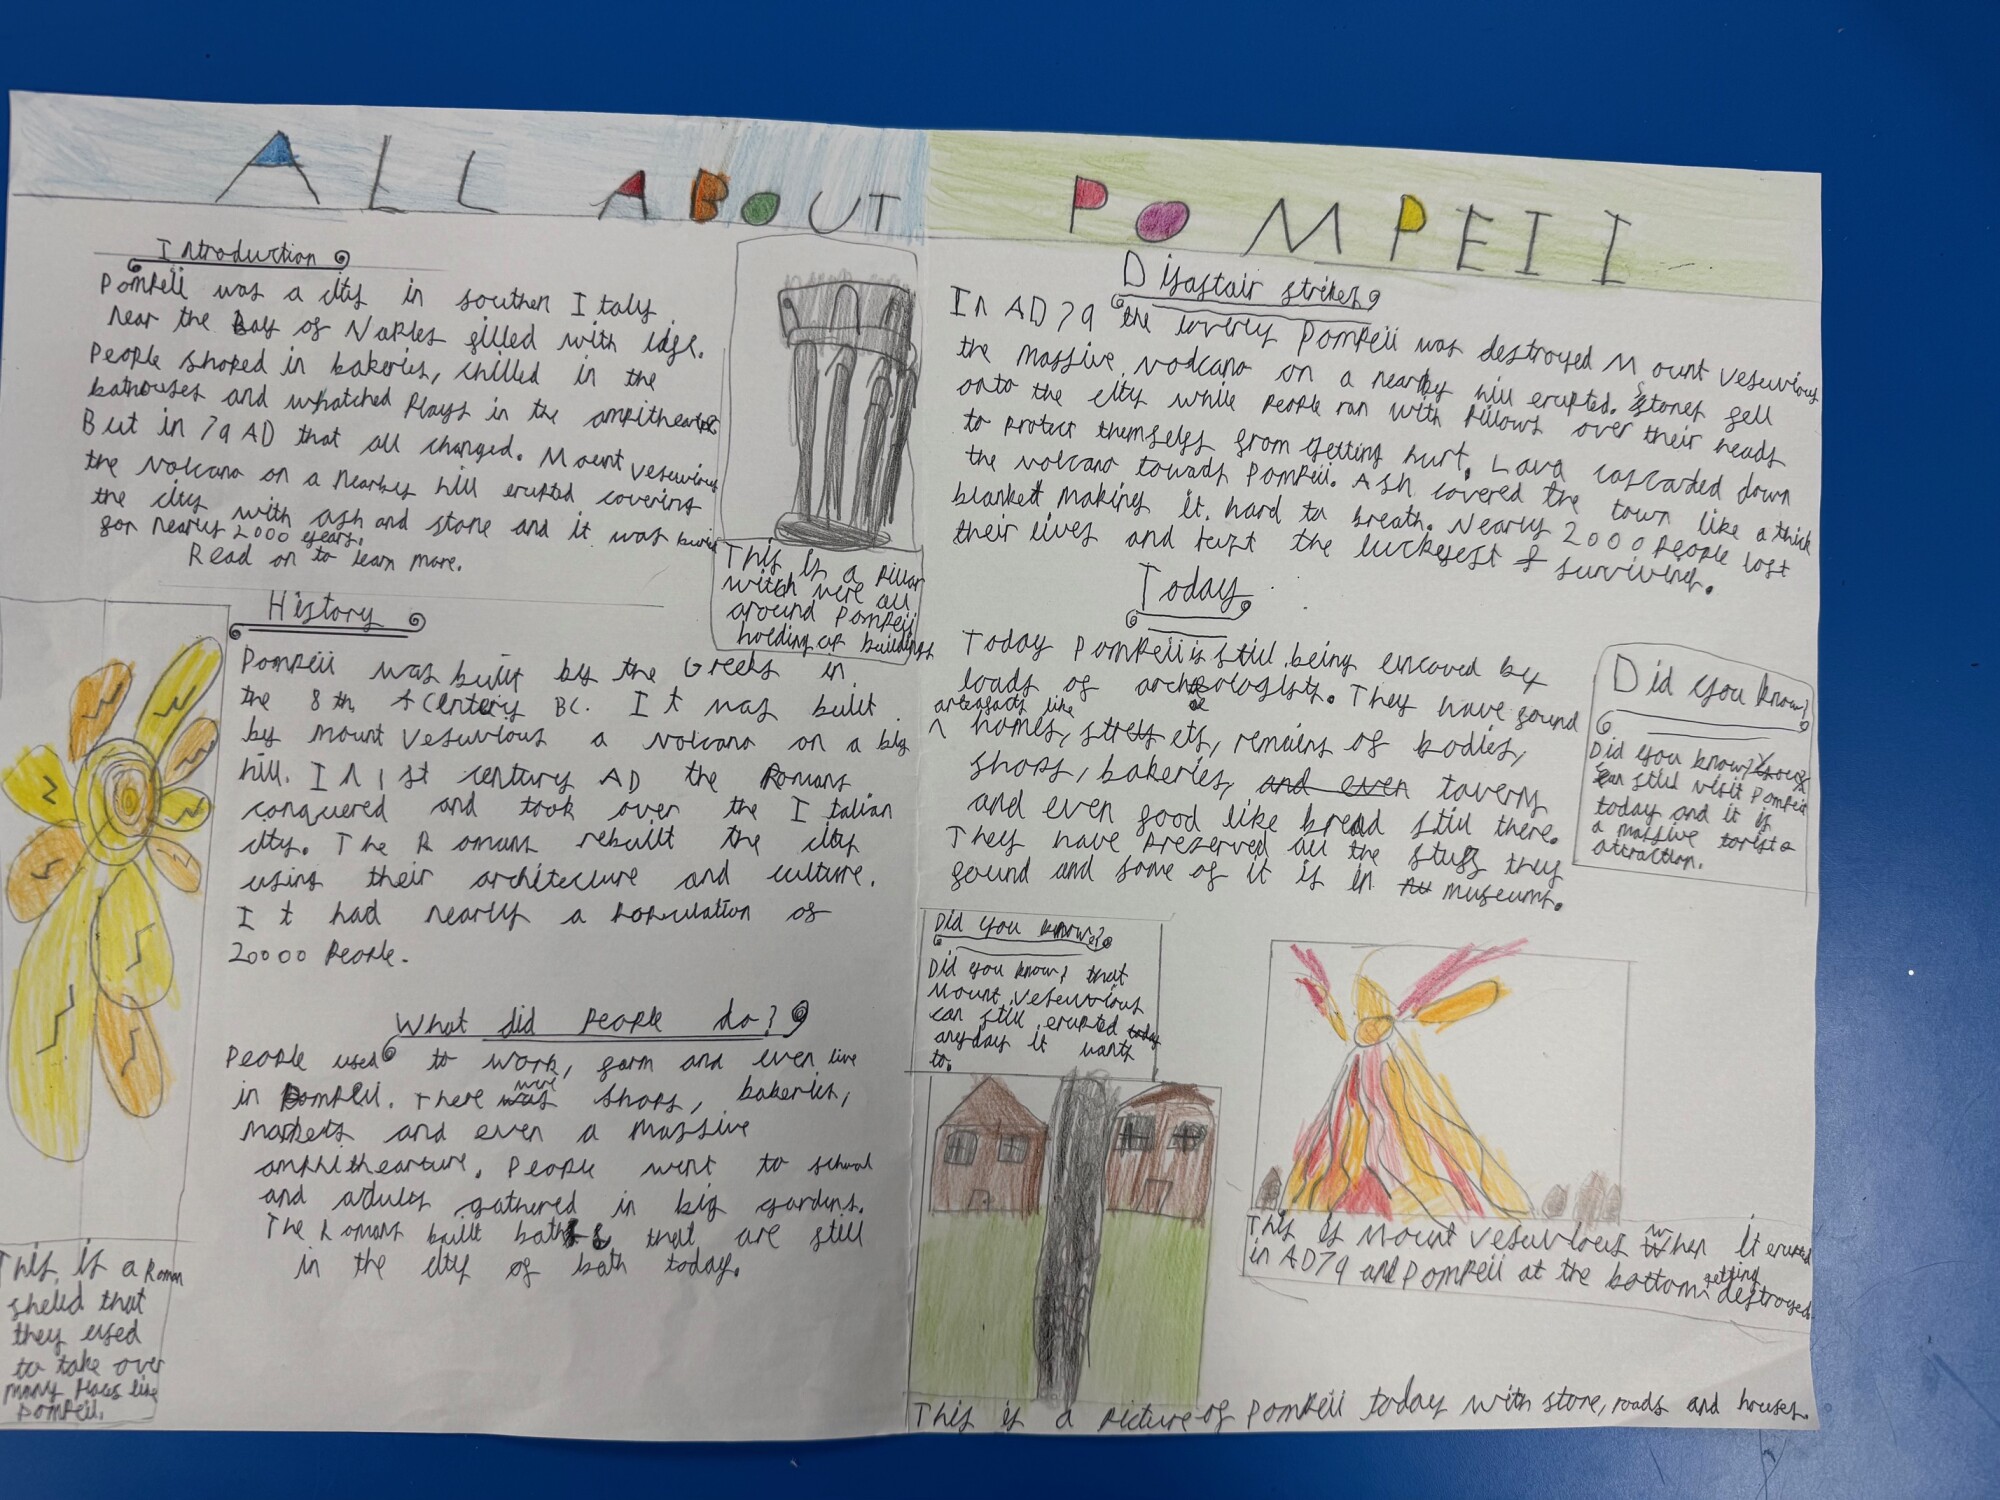 ALL ABOUT POMPEII
Introduction
Pompeii was a city in southen Italy
near the Bay of Naples filled with life.
People shoped in bakeries, chilled in the
bathouses and whatched plays in the
But in 79 AD that all changed. Mount Vesuvious
the volcano on a nearby hill erupted covering
the city with ash and stone and it was
for nearly 2000 years.
Read on to learn more.
This is a pillar
witch were all
around Pompeii
holding up buildings
History
Pompeii was built by the Greeks in
the 8th Centery BC. It was built
by Mount Vesuvious a volcano on a big
hill. In 1st century AD the Romans
conquered and took over the Italian
city. The Romans rebuilt the city
using their architecture and culture.
It had nearly a population of
20000 people.
What did people do?
People used to work, farm and even live
in Pompeii. There were shops, bakeries,
markets and even a massive
amphithearture. People went to school
and adults gathered in big gardens.
The Romans built baths that are still
in the city of bath today.
This is a Roman
sheild that
they used
to take over
many places like
Pompeii.
Disastair strikes
In AD 79 the loverly Pompeii was destroyed Mount Vesuvious
the massive volcano on a nearby hill erupted. Stones fell
onto the city while people ran with pillows over their heads
to protect themselfs from getting hurt. Lava cascaded down
the volcano towads Pompeii. Ash covered the town like a thick
blanket making it hard to breath. Nearly 2000 people lost
their lives and just the luckyest surviving.
Today
Today Pompeii is still being encoved by
loads of archeologists. They have found
artefacts like
homes, streets, remains of bodies,
shops, bakeries, and even taverns
and even food like bread still there.
They have prezerved all the stuff they
found and some of it is in museums.
Did you know?
Did you know? You
can still visit Pompeii
today and it is
a massive torist
attraction.
Did you know?
Did you know? that
Mount Vesuvious
can still erupted today
anyday it wants
to.
This is Mount Vesuvious when it erupted
in AD79 and Pompeii at the bottom getting destroyed.
This is a picture of Pompeii today with stone, roads and houses.